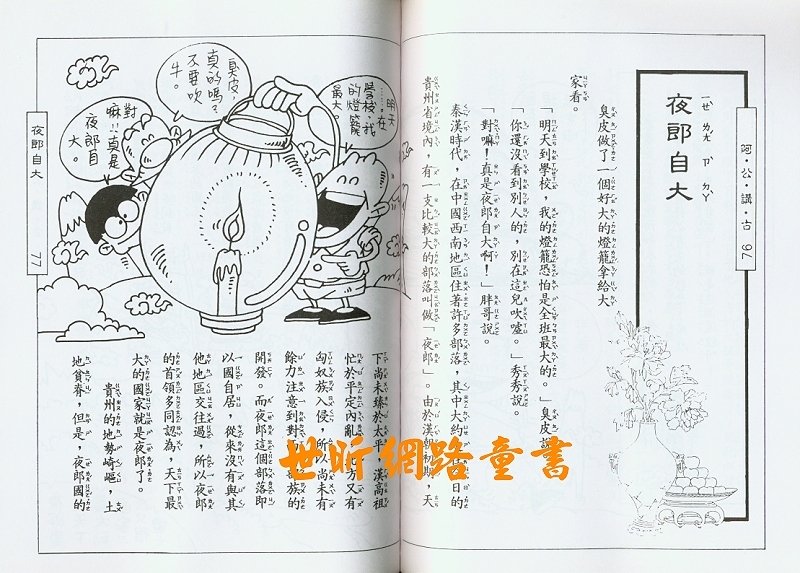 阿·公·講·古 76
夜郎自大
ㄧㄝˋ ㄌㄤˊ ㄗˋ ㄉㄚˋ
臭皮做了一個好大的燈籠拿給大
家看。
「明天到學校，我的燈籠恐怕是全班最大的。」臭皮說
「你還沒看到別人的，別在這兒吹噓。」秀秀說。
「對嘛！真是夜郎自大啊！」胖哥說。
秦漢時代，在中國西南地區住著許多部落，其中大約 日的
貴州省境內，有一支比較大的部落叫做「夜郎」。由於漢朝初期，天
……明天在
學校，我
的燈籠
最大。
臭皮，
真的嗎？
不要吹
牛。
對
嘛！！真是
夜郎自
大。
下尚未臻於太平，漢高祖
忙於平定內亂，北方又有
匈奴族入侵，所以尚未有
餘力注意到對 部族的
開發。而夜郎這個部落即
以國自居，從來沒有與其
他地區交往過，所以夜郎
的首領多同認為，天下最
大的國家就是夜郎了。
貴州的地勢崎嶇，土
地貧脊，但是，夜郎國的
夜郎自大 77
世昕網路童書